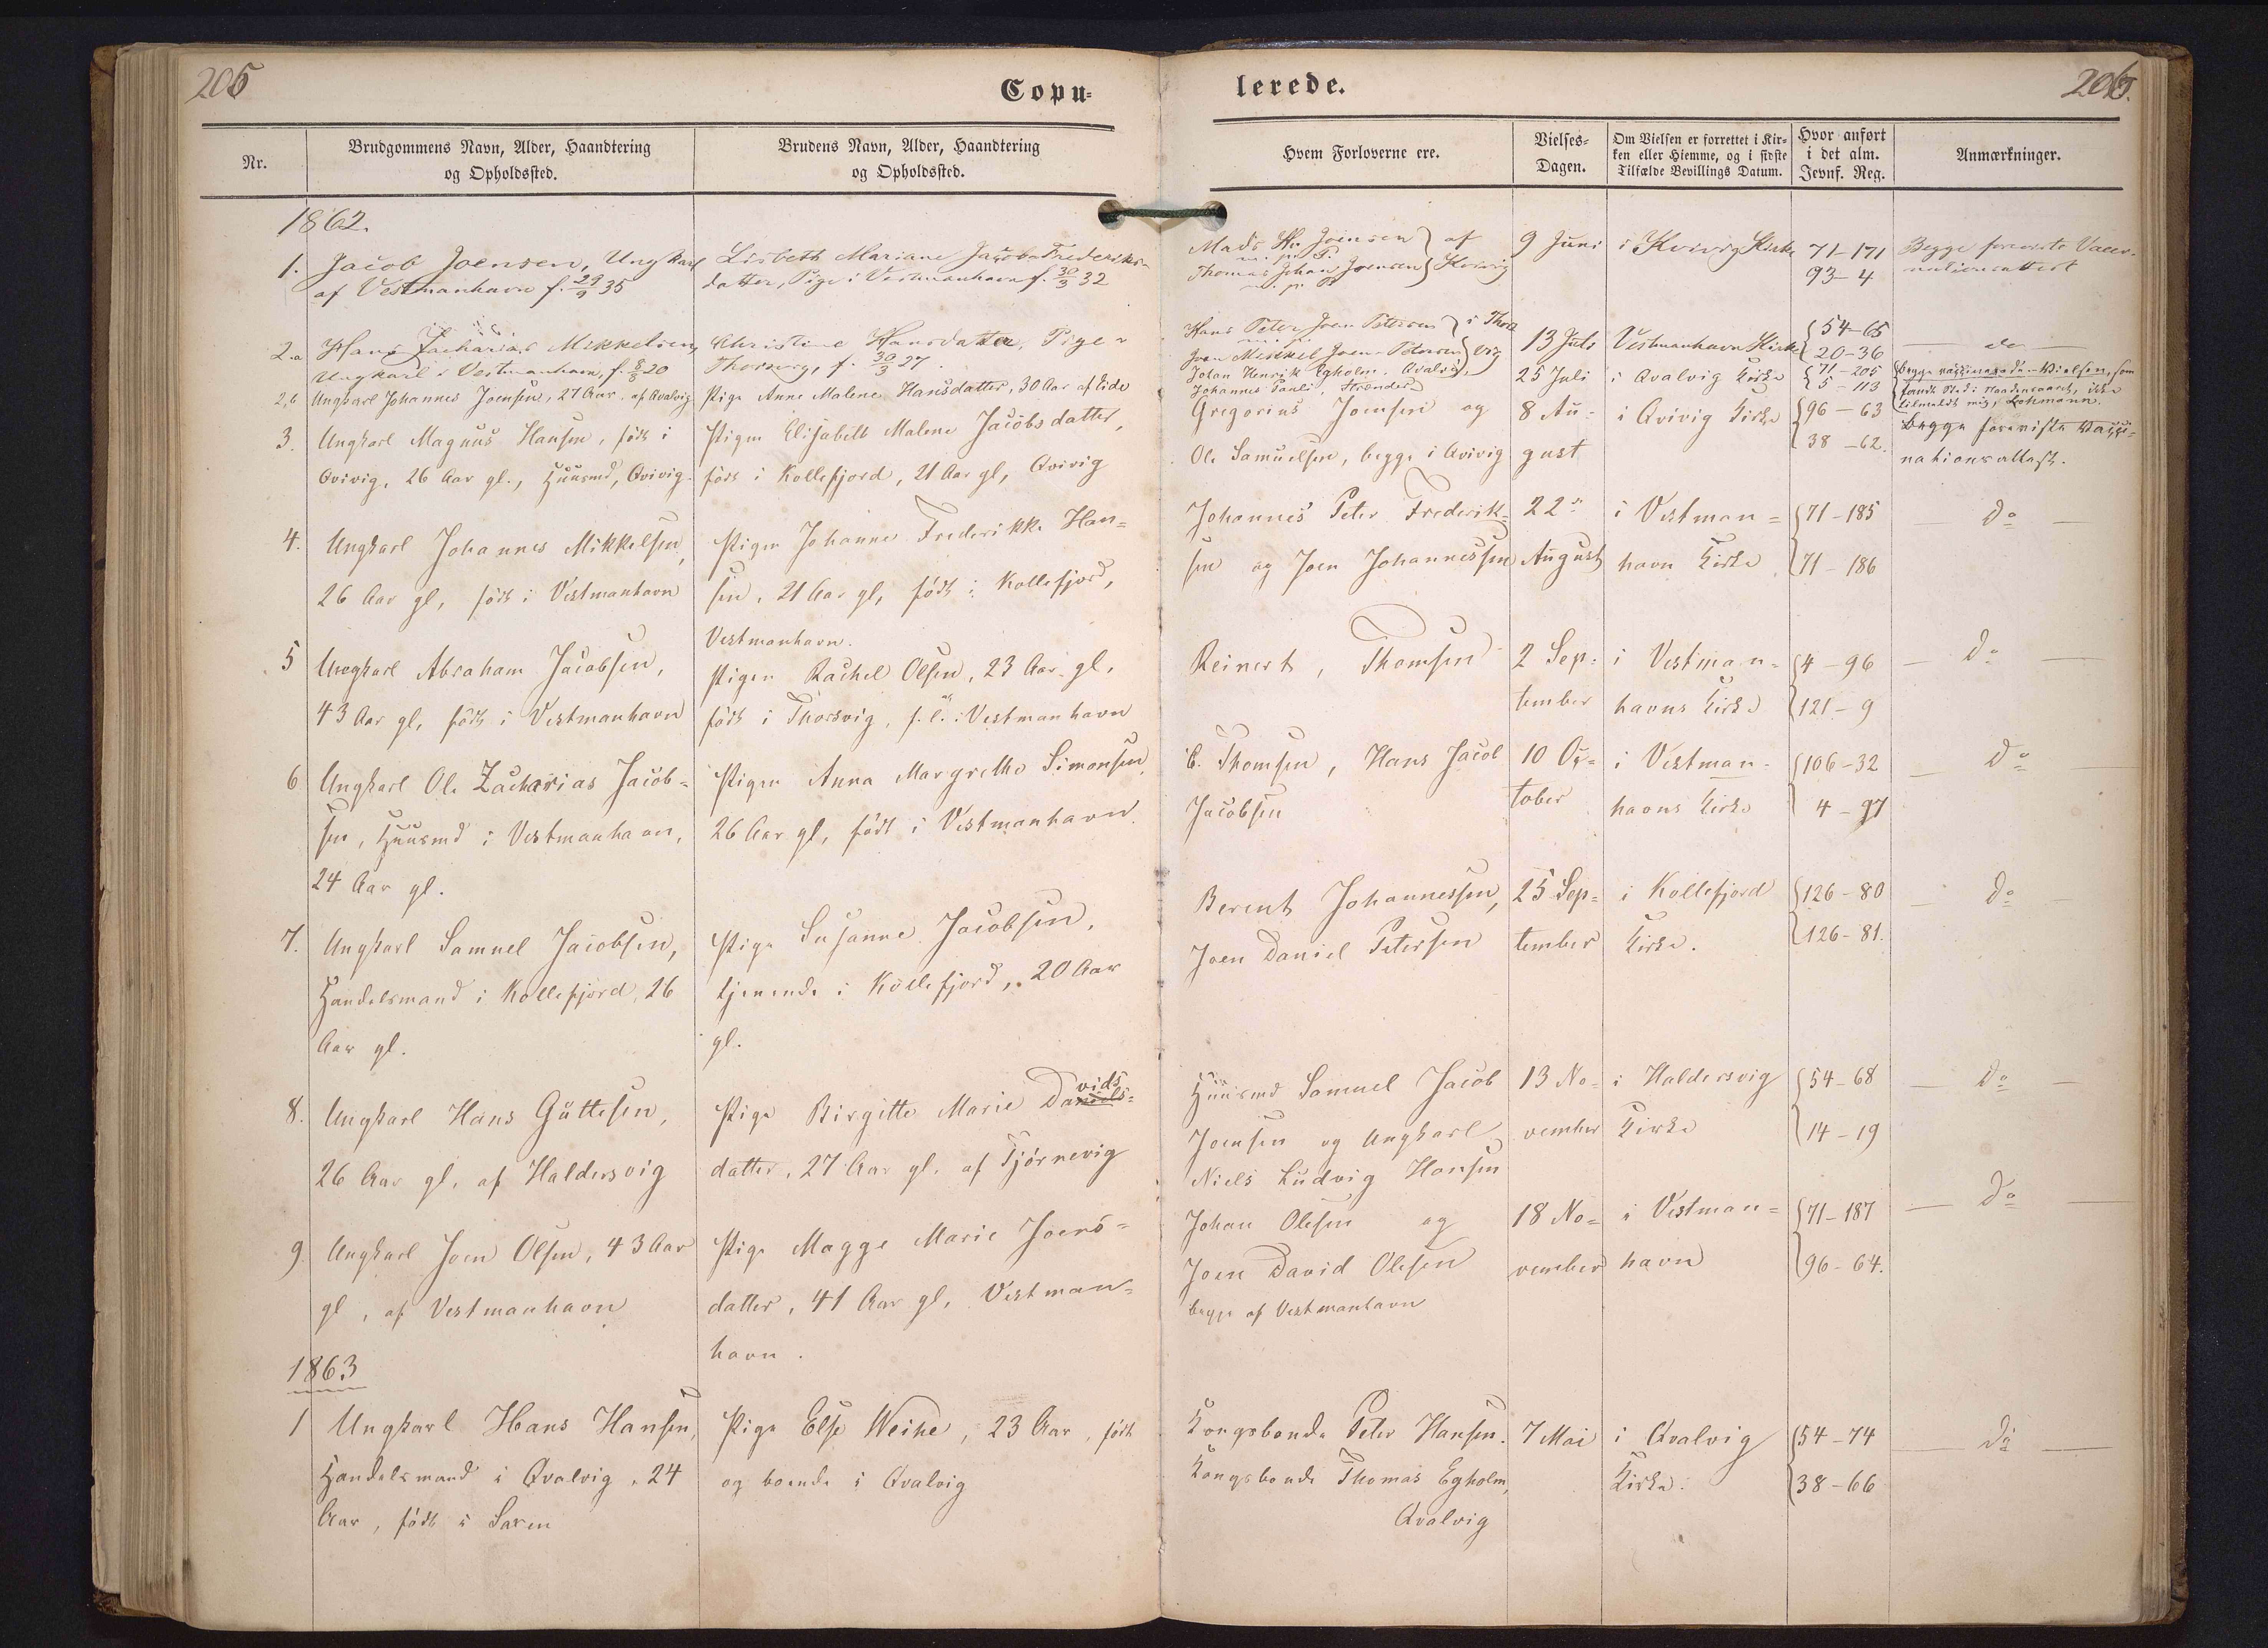 205
Copu-
lerede.
206.
Nr.
Brudgommens Navn, Alder, Haandtering
og Opholdssted.
Brudens Navn, Alder, Haandtering
og Opholdssted.
Hvem Forloverne ere.
Vielses-
Dagen.
Om Vielsen er forrettet i Kir-
ken eller Hiemme, og i sidste
Tilfælde Bevillings Datum.
Hvor anført
i det alm.
Jevnf. Reg.
Anmærkninger.
1862.
1. Jacob Joensen, Ungkarl
af Vestmanhavn f. 29/9 35
Lisbeth Mariane Jacobs Frederiks-
datter, Pige i Vestmanhavn f. 30/3 32
Mads Hr. Joensen } af
m. p. P.
Thomas Johan Joensen } Kvivig
m. p. P.
9 Juni
i Kvivig Kirke
71-171
93-4
Begge foreviste Vacci-
nationsattest
2.a Hans Zacharias Mikkelsen,
Ungkarl i Vestmanhavn, f. 8/8 20
Christine Hansdatter, Pige i
Thorsvig, f. 30/3 27.
Hans Peter Joen Petersen } i Thors
Joen Mikkel Joen-Petersen } vig
13 Juli
Vestmanhavn Kirke
{ 54-65
20-36
— do —
2,b Ungkarl Johannes Joensen, 27 Aar. af Qvalvig
Pige Anne Malene Hansdatter, 30 Aar af Eide
Johan Henrik Egholm. Qvalvig,
Johannes Pauli, Strender
25 Juli
i Qvalvig Kirke
{ 71-205
5-113
Begge vaccinerede. - Vielsen, som
fandt Sted i Haadensaaret, ikke
tilmeldt mig, Lohmann.
3. Ungkarl Magnus Hansen, født i
Qvivig, 26 Aar gl., Huusmd, Qvivig.
Pigen Elisabeth Malene Jacobsdatter,
født i Kollefjord, 21 Aar gl, Qvivig
Gregorius Joensen og
Ole Samuelsen, begge i Qvivig
8 Au-
gust
i Qvivig Kirke
{ 96-63
38-62.
Begge foreviste Vacci-
nationsattest.
4. Ungkarl Johannes Mikkelsen,
26 Aar gl, født i Vestmanhavn
Pigen Johanne Frederikke Han-
sen, 21 Aar gl, født i Kollefjord,
Vestmanhavn.
Johannes Peter Frederik-
sen og Joen Johannessen
22de
August
i Vestman-
havn Kirke
{ 71-185
71-186
do —
5 Ungkarl Abraham Jacobsen,
43 Aar gl, født i Vestmanhavn
Pigen Rachel Olsen, 23 Aar gl.
født i Thorsvig, f. l. i Vestmanhavn
Reinert, Thomsen
2 Sep-
tember
i Vestman-
havns Kirke
{ 4-96
121-9
— do —
6 Ungkarl Ole Zacharias Jacob-
sen, Huusmd i Vestmanhavn,
24 Aar gl.
Pigen Anna Margrethe Simonsen,
26 Aar gl, født i Vestmanhavn.
C. Thomsen, Hans Jacob
Jacobsen
10 Oc-
tober
i Vestman-
havns Kirke
{ 106-32
4-97
— do —
7. Ungkarl Samuel Jacobsen,
Handelsmand i Kollefjord, 26
Aar gl.
Pige Susanne Jacobsen,
tjenende i Kollefjord, 20 Aar
gl.
Berent Johannessen,
Joen Daniel Petersen
25 Sep-
tember
i Kollefjord
Kirke.
{ 126-80
126-81.
— do —
8. Ungkarl Hans Guttesen,
26 Aar gl. af Haldersvig
vids
Pige Birgitte Marie Daniels-
datter, 27 Aar gl. af Tjørnevig
Huusmd Samuel Jacob
Joensen og Ungkarl
Niels Ludvig Hansen
13 No-
vember
i Haldersvig
Kirke
{ 54-68
14-19
— do —
9. Ungkarl Joen Olsen, 43 Aar
gl, af Vestmanhavn
Pige Magge Marie Joens-
datter, 41 Aar gl, Vestman-
havn.
Johan Olesen og
Joen David Olesen
begge af Vestmanhavn
18 No-
vember
i Vestman-
havn
{ 71-187
96-64.
— do —
1863
1 Ungkarl Hans Hansen,
Handelsmand i Qvalvig, 24
Aar, født i Saxen
Pige Else Weihe, 23 Aar, født
og boende i Qvalvig
Kongsbonde Peter Hansen.
Kongsbonde Thomas Egholm,
Qvalvig
7 Mai
i Qvalvig
Kirke.
{ 54-74
38-66
— do —